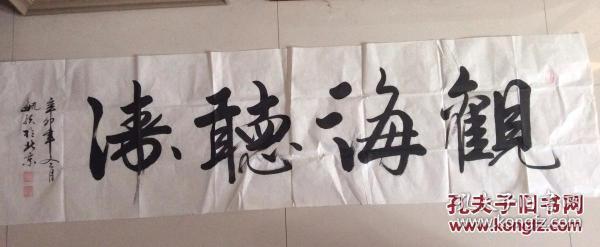 觀海聽濤
辛卯年
於北京
孔夫子旧书网
www.kongfz.com